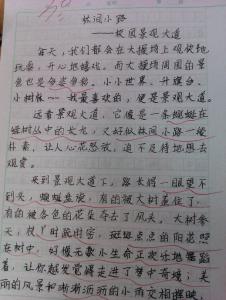 林间小路
——校园景观大道
每天,我们都会在大操场上愉快地
玩耍,开心地嬉戏。而大操场周围的景
色也是多姿多彩。小小世界、升旗台、
小树林……我最喜欢的,便是景观大道。
远看景观大道,它像是一条蝴蝶在
绿树丛中的长龙,又好似林间小路一般
朴素,让人心花怒放,迫不及待地想去
观赏。
来到景观大道下,路长得一眼望不
到头,蜿蜒盘旋,有的被大树盖住了,
有的被各色的花朵夺去了风头。大树参
天,枝叶时疏时密,斑斑点点的阳光照
在树中,好像无数小生命正欢乐地舞蹈
着,让你越发觉得走进了梦中奇境;美
丽的风景和淅淅沥沥的小雨交相辉映,